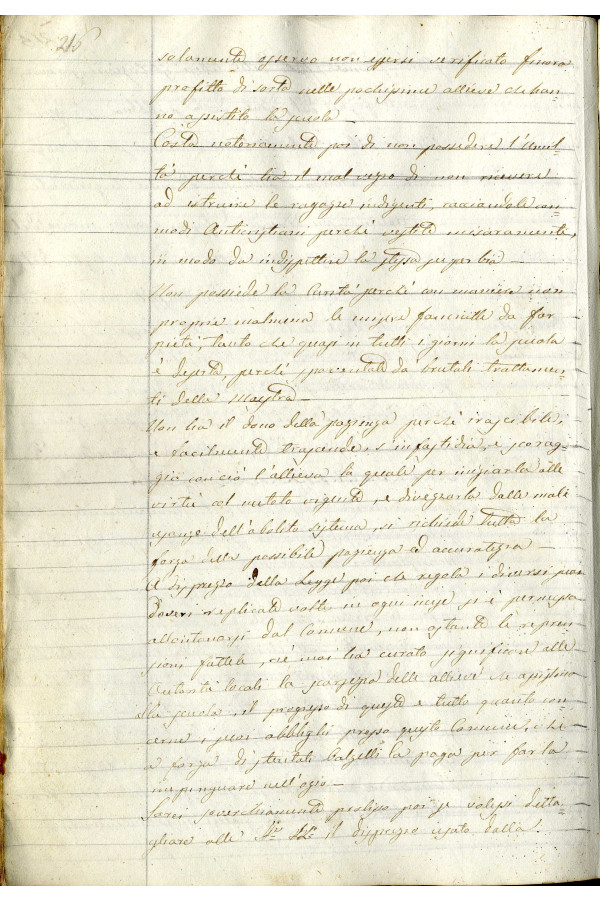 215
solamente osservo non essersi verificato finora
profitto di sorta nelle pochissime allieve che han-
no assistito la scuola —
Costa notoriamente poi di non possedere l'umil-
tà perché ha il mal vezzo di non ricevere
ad istruire le ragazze indigenti, cacciandole con
modi perché vestite miseramente,
in modo da indispettire la stessa superbia —
Non possiede la carità perché con maniere non
proprie malmena le misere fanciulle da far
pietà, tanto che quasi in tutti i giorni la scuola
è deserta, perché spaventate da brutali trattamen-
ti della Maestra —
Non ha il dono della pazienza perché irascibile,
e facilmente trascende, s'infastidia, e scorag-
gia con ciò l'allieva la quale per iniziarla alle
virtù col metodo vigente, e divezzarla dalle male
usanze dell'abolito sistema, si richiede tutta la
forza della possibile pazienza ed accuratezza —
A disprezzo della Legge poi che regola i diversi suoi
doveri replicate volte in ogni mese si è permessa
allontanarsi dal Comune, non ostante le repren-
sioni fattele, né mai ha curato significare alle
Autorità locali la scarsezza delle allieve che assistono
la scuola, il progresso di queste e tutto quanto con-
cerne i suoi obblighi presso questo Comune, che
a forza di stentati balzelli la paga per farla
impinguare nell'ozio —
Sarei soverchiamente prolisso poi se volessi detta-
gliare alle il disprezzo usato dalla